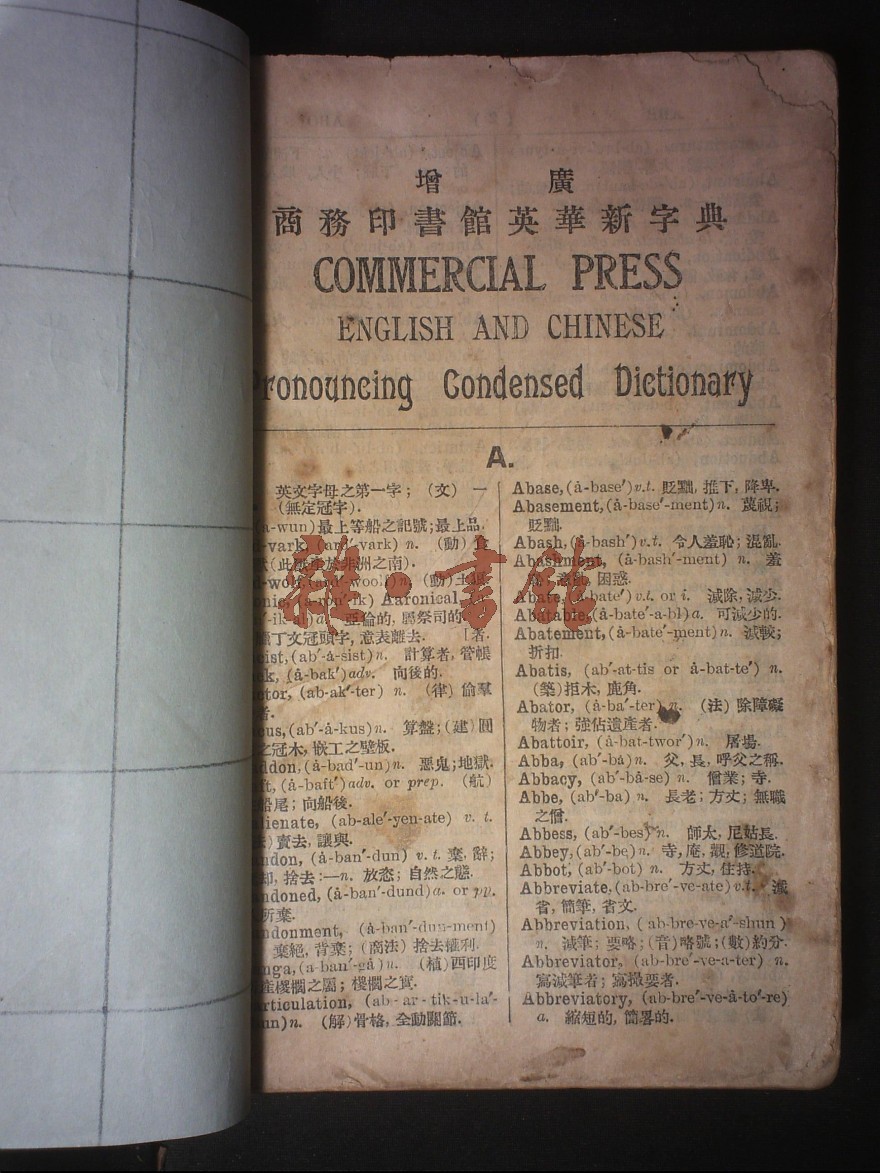 增 廣
商務印書館英華新字典
COMMERCIAL PRESS
ENGLISH AND CHINESE
Pronouncing Condensed Dictionary
A.
英文字母之第一字; (文) 一
(無定冠字).
(a-wun)最上等船之記號;最上品.
-vark, (ard'-vark) n. (動) 食
(此獸產於非洲之南).
(動)土狼
Aaronical,
a. 亞倫的, 屬祭司的
丁文冠頭字, 意表離去. 「者.
cist, (ab'-å-sist) n. 計算者, 管帳
ck, (å-bak') adv. 向後的.
ctor, (ab-ak'-ter) n. (律) 偷羣
者.
cus, (ab'-å-kus) n. 算盤; (建) 圓
之冠木, 嵌工之壁板.
ddon, (å-bad'-un) n. 惡鬼; 地獄.
ft, (å-baft') adv. or prep. (航)
船尾; 向船後.
lienate, (ab-ale'-yen-ate) v. t.
賣去, 讓與.
ndon, (å-ban'-dun) v. t. 棄, 辭;
却, 捨去:—n. 放恣; 自然之態.
ndoned, (å-ban'-dund) a. or pp.
所棄.
ndonment, (å-ban'-dun-ment)
棄絕, 背棄; (商法) 捨去權利.
nga, (a-ban'-gå) n. (植) 西印度
產椶櫚之屬; 椶櫚之實.
articulation, (ab-ar-tik-u-la'-
un) n. (解) 骨格, 全動關節.
Abase, (å-base') v.t. 貶黜, 推下, 降卑.
Abasement, (å-base'-ment) n. 蔑視;
貶黜.
Abash, (å-bash') v.t. 令人羞恥; 混亂.
Abashment, (å-bash'-ment) n. 羞
困惑.
Abate, (å-bate') v.t. or i. 減除, 減少.
Abatable, (å-bate'-a-bl) a. 可減少的.
Abatement, (å-bate'-ment) n. 減較;
折扣.
Abatis, (ab'-at-tis or å-bat-te') n.
(築) 拒木, 鹿角.
Abator, (å-ba'-ter) n. (法) 除障礙
物者; 強佔遺產者.
Abattoir, (å-bat-twor') n. 屠場.
Abba, (ab'-bå) n. 父, 長, 呼父之稱.
Abbacy, (ab'-bå-se) n. 僧業; 寺.
Abbe, (ab'-ba) n. 長老; 方丈; 無職
之僧.
Abbess, (ab'-bes) n. 師太, 尼姑長.
Abbey, (ab'-be) n. 寺, 庵, 觀, 修道院.
Abbot, (ab'-bot) n. 方丈, 住持.
Abbreviate, (ab-bre'-ve-ate) v.t. 減
省, 簡筆, 省文.
Abbreviation, (ab-bre-ve-a'-shun)
n. 減筆; 要略; (音) 略號; (數) 約分.
Abbreviator, (ab-bre'-ve-a-ter) n.
寫減筆者; 寫撮要者.
Abbreviatory, (ab-bre'-ve-å-to'-re)
a. 縮短的, 簡畧的.